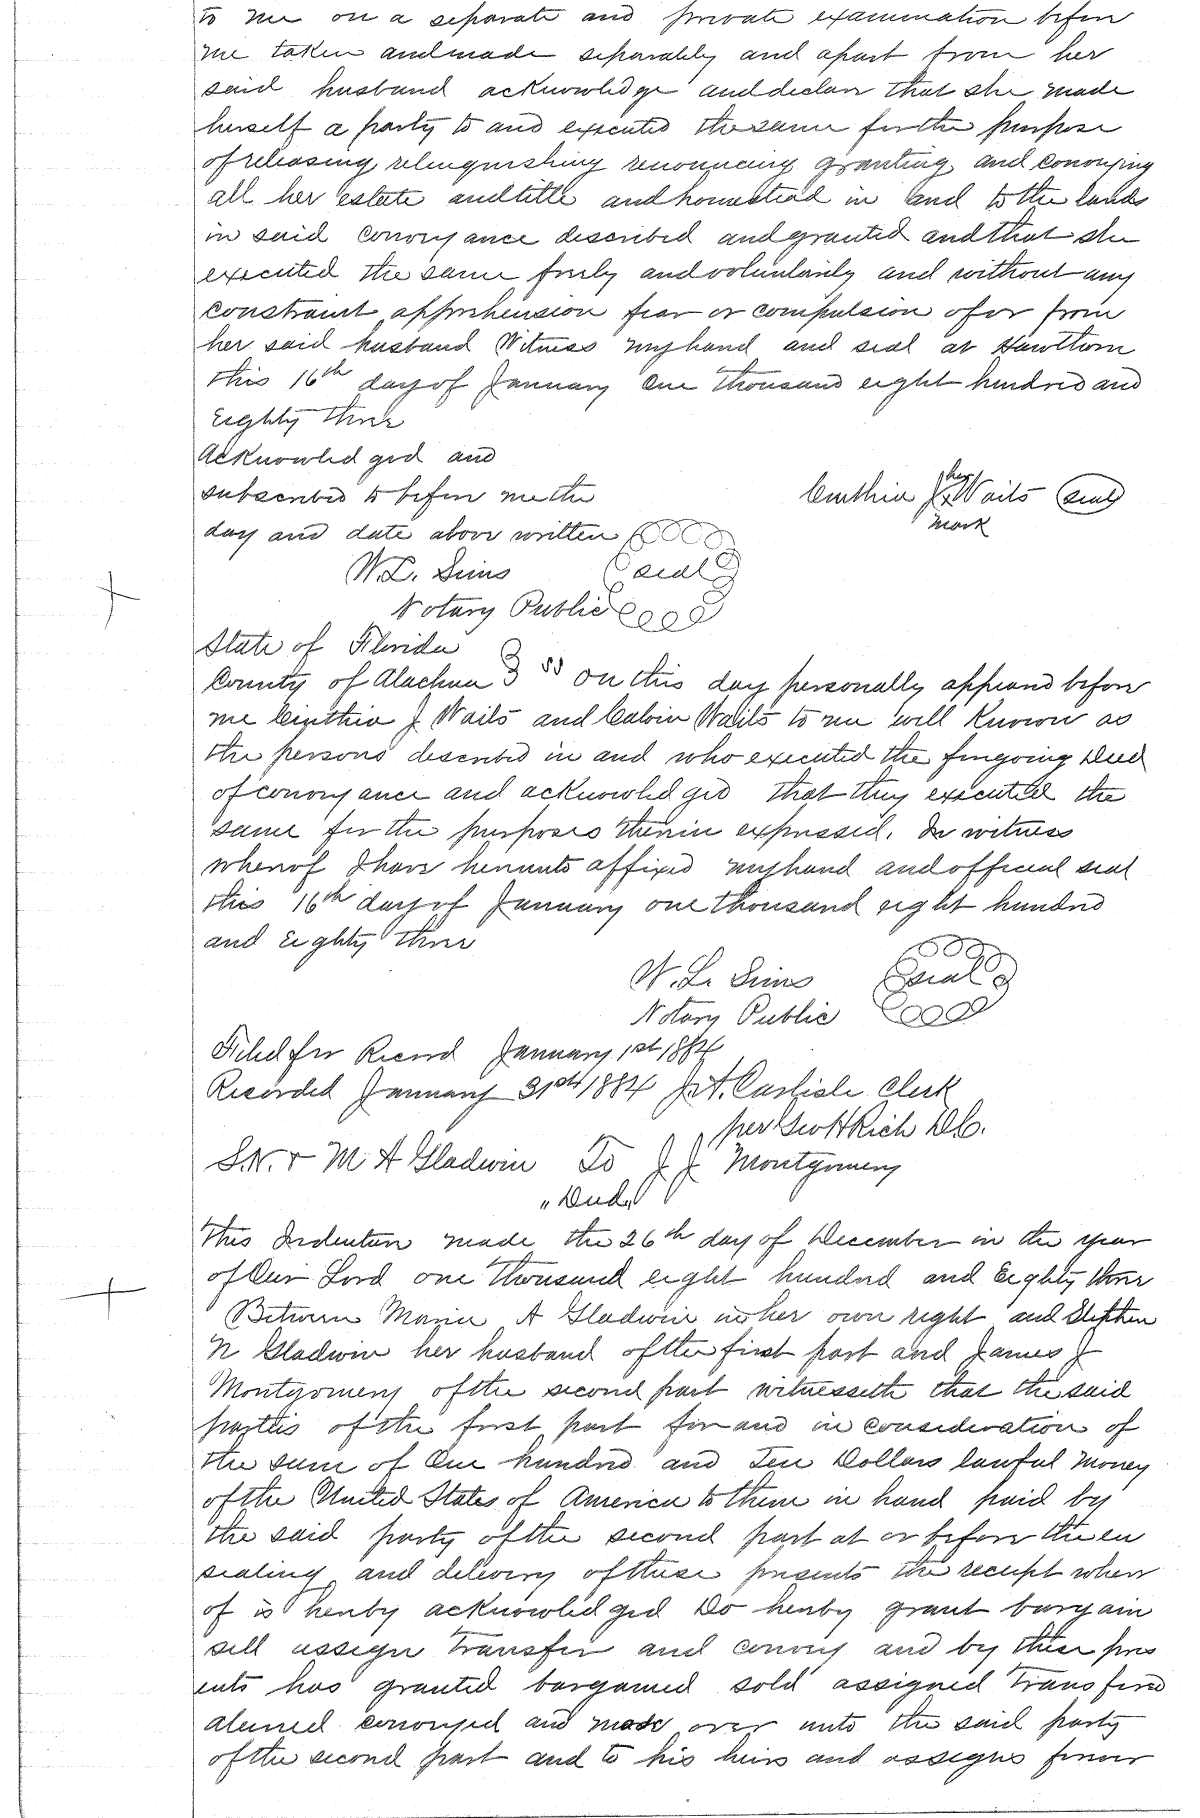 to me on a separate and private examination before
me taken and made separately and apart from her
said husband acknowledge and declare that she made
herself a party to and executed the same for the purpose
of releasing, relinquishing renouncing granting and conveying
all her estate and title and homestead in and to the lands
in said conveyance described and granted and that she
executed the same freely and voluntarily and without any
constraint apprehension fear or compulsion of or from
her said husband Witness my hand and seal at Hawthorn
this 16th day of January One thousand eight hundred and
Eighty three
Acknowledged and
subscribed to before me the
day and date above written
Cinthia J her x mark Waits seal
W.L. Sims seal
Notary Public
State of Florida
County of Alachua } ss On this day personally appeared before
me Cinthia J Waits and Calvin Waits to me well known as
the persons described in and who executed the foregoing Deed
of conveyance and acknowledged that they executed the
same for the purposes therein expressed. In witness
whereof I have hereunto affixed my hand and official seal
this 16th day of January one thousand eight hundred
and Eighty three
W. L. Sims seal
Notary Public
Filed for Record January 1st 1884
Recorded January 31st 1884 J.A. Carlisle Clerk
per Geo H Rich D.C.
S.N. & M A Gladwin To J J Montgomery
"Deed"
This Indenture made the 26th day of December in the year
of Our Lord one thousand eight hundred and Eighty three
Between Maria A Gladwin in her own right and Stephen
N Gladwin her husband of the first part and James J
Montgomery of the second part witnesseth that the said
parties of the first part for and in consideration of
the sum of One hundred and Ten Dollars lawful money
of the United States of America to them in hand paid by
the said party of the second part at or before the en
sealing and delivery of these presents the receipt where
of is hereby acknowledged Do hereby grant bargain
sell assign transfer and convey and by these pres
ents has granted bargained sold assigned transfered
aliened conveyed and made over unto the said party
of the second part and to his heirs and assigns forever